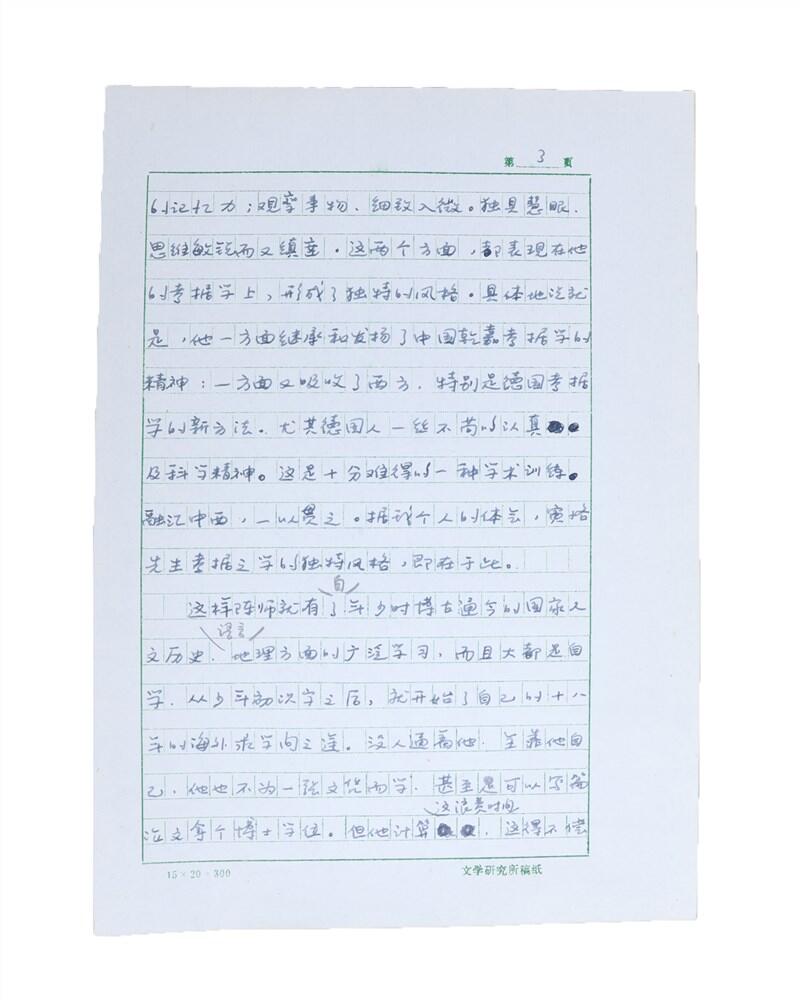 第 3 页
的记忆力；观察事物、细致入微。独具慧眼、
思维敏锐而又缜密。这两个方面，都表现在他
的考据学上，形成了独特的风格。具体地说就
是，他一方面继承和发扬了中国乾嘉考据学的
精神：一方面又吸收了西方、特别是德国考据
学的新方法。尤其德国人一丝不苟的认真
及科学精神。这是十分难得的一种学术训练。
融汇中西，一以贯之。据我个人的体会，寅恪
先生考据之学的独特风格，即在于此。
自
这样陈师就有了年少时博古通今的国家人
语言
文历史、地理方面的广泛学习，而且大都是自
学。从少年初识字之后，就开始了自己的十八
年的海外求学问之途。没人逼着他、全靠他自
己，他也不为一张文凭而学，甚至是可以写篇
这浪费时间
论文拿个博士学位。但他计算，这得不偿
15×20=300
文学研究所稿纸